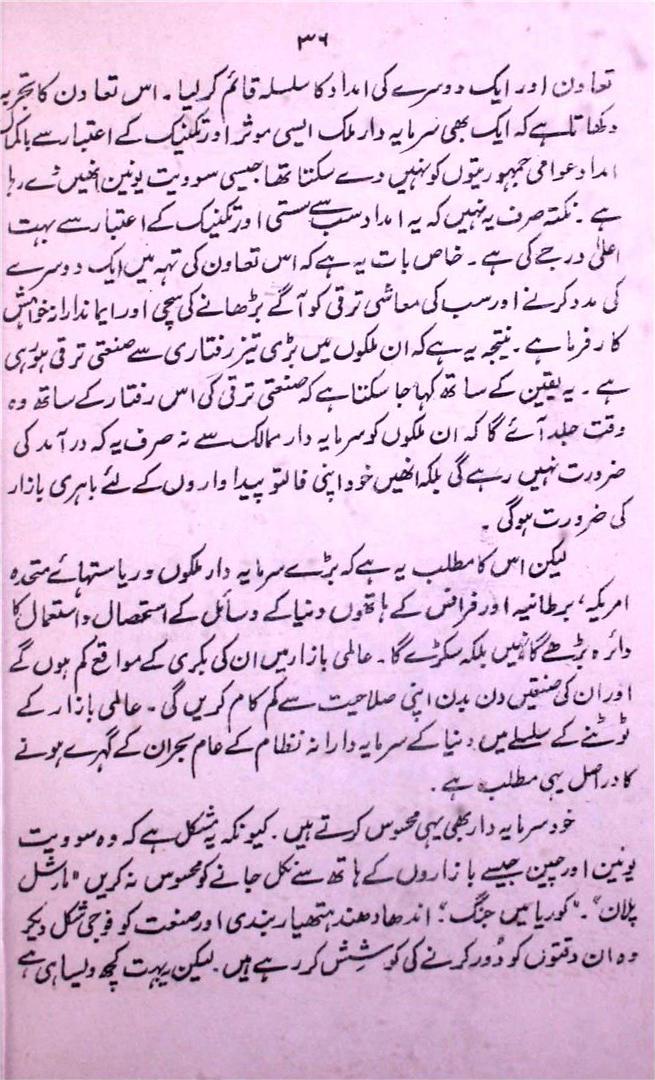 ۳۶
تعاون اور ایک دوسرے کی امداد کا سلسلہ قائم کر لیا۔ اس تعاون کا تجربہ
دکھاتا ہے کہ ایک بھی سرمایہ دار ملک ایسی موثر اور تکنیک کے اعتبار سے باکمال
امداد عوامی جمہوریتوں کو نہیں دے سکتا تھا جیسی سوویت یونین انھیں دے رہا
ہے۔ نکتہ صرف یہ نہیں کہ یہ امداد سب سے سستی اور تکنیک کے اعتبار سے بہت
اعلیٰ درجے کی ہے۔ خاص بات یہ ہے کہ اس تعاون کی تہہ میں ایک دوسرے
کی مدد کرنے اور سب کی معاشی ترقی کو آگے بڑھانے کی سچی اور ایماندارانہ خواہش
کارفرما ہے۔ نتیجہ یہ ہے کہ ان ملکوں میں بڑی تیز رفتاری سے صنعتی ترقی ہو رہی
ہے۔ یہ یقین کے ساتھ کہا جا سکتا ہے کہ صنعتی ترقی کی اس رفتار کے ساتھ وہ
وقت جلد آئے گا کہ ان ملکوں کو سرمایہ دار ممالک سے نہ صرف یہ کہ درآمد کی
ضرورت نہیں رہے گی بلکہ انھیں خود اپنی فالتو پیداواروں کے لئے باہری بازار
کی ضرورت ہوگی۔
لیکن اس کا مطلب یہ ہے کہ بڑے سرمایہ دار ملکوں و ریاستہائے متحدہ
امریکہ، برطانیہ اور فرانس کے ہاتھوں دنیا کے وسائل کے استحصال و استعمال کا
دائرہ بڑھے گا نہیں بلکہ سکڑے گا۔ عالمی بازار میں ان کی بکری کے مواقع کم ہوں گے
اور ان کی صنعتیں دن بدن اپنی صلاحیت سے کم کام کریں گی۔ عالمی بازار کے
ٹوٹنے کے سلسلے میں دنیا کے سرمایہ دارانہ نظام کے عام بحران کے گہرے ہونے
کا دراصل یہی مطلب ہے۔
خود سرمایہ دار بھی یہی محسوس کرتے ہیں۔ کیونکہ یہ شکل ہے کہ وہ سوویت
یونین اور چین جیسے بازاروں کے ہاتھ سے نکل جانے کو محسوس نہ کریں "مارشل
پلان"۔ "کوریا میں جنگ"۔ اندھا دھند ہتھیار بندی اور صنعت کو فوجی شکل دیکر
وہ ان دقتوں کو دُور کرنے کی کوشش کر رہے ہیں۔ لیکن یہ بہت کچھ ویسا ہی ہے